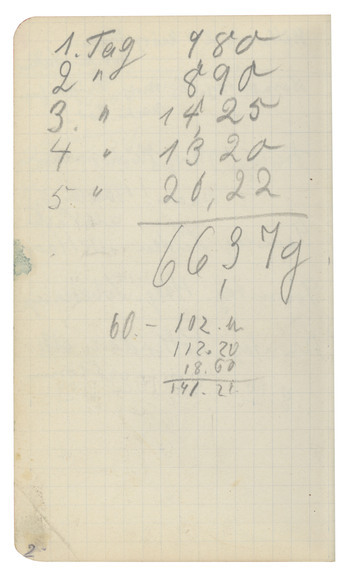 1. Tag 9 80
2 " 8 90
3. " 14,25
4 " 13 20
5. " 20,22
66,37g
60.-
112.20
18.60
2